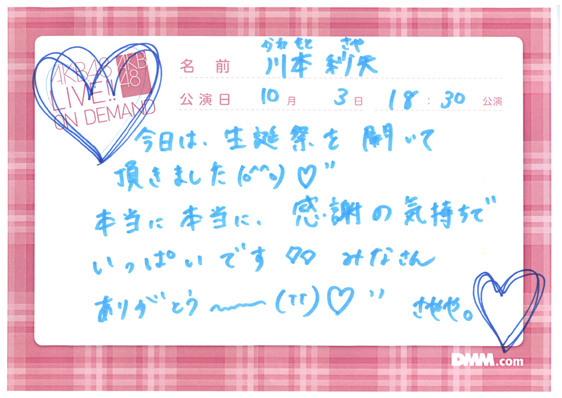 AKB48
LIVE!!
ON DEMAND
AKB
48
かわ もと さや
名 前 川本 紗矢
公演日 10月 3日 18:30 公演
今日は、生誕祭を 開いて
頂きました(o^^o)♡"
本当に本当に、感謝の気持ちで
いっぱいです みなさん
ありがとう〜〜(TT)♡"
さやや。
DMM.com